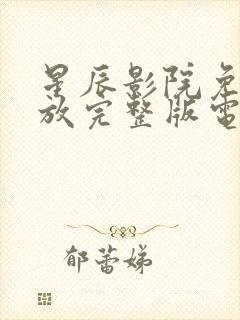 星辰影院免
放完整版電
郁蕾娣